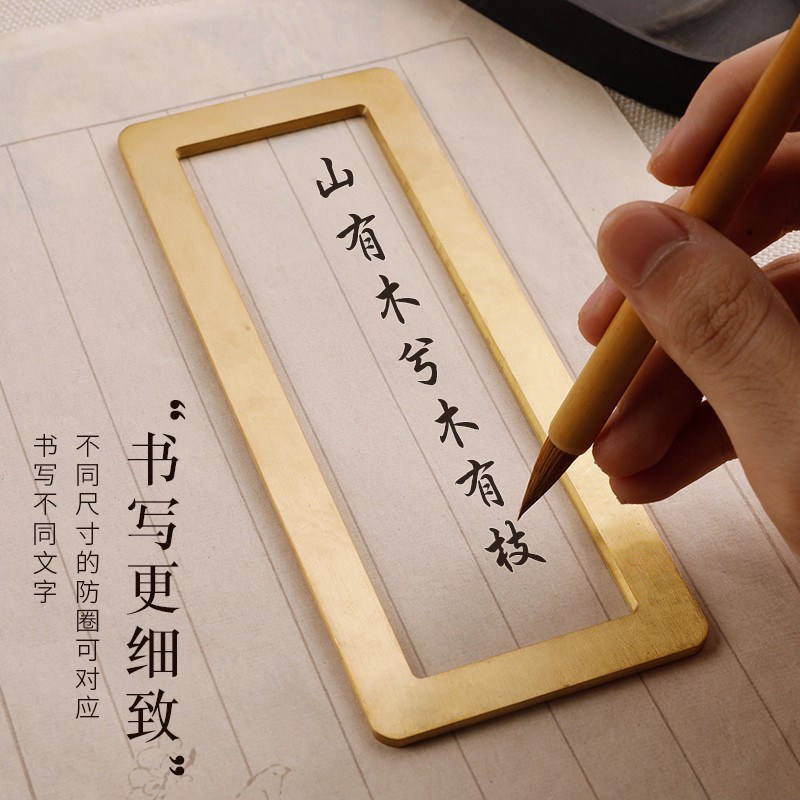 山有木兮木有枝
“书写更细致”
不同尺寸的防圈可对应
书写不同文字